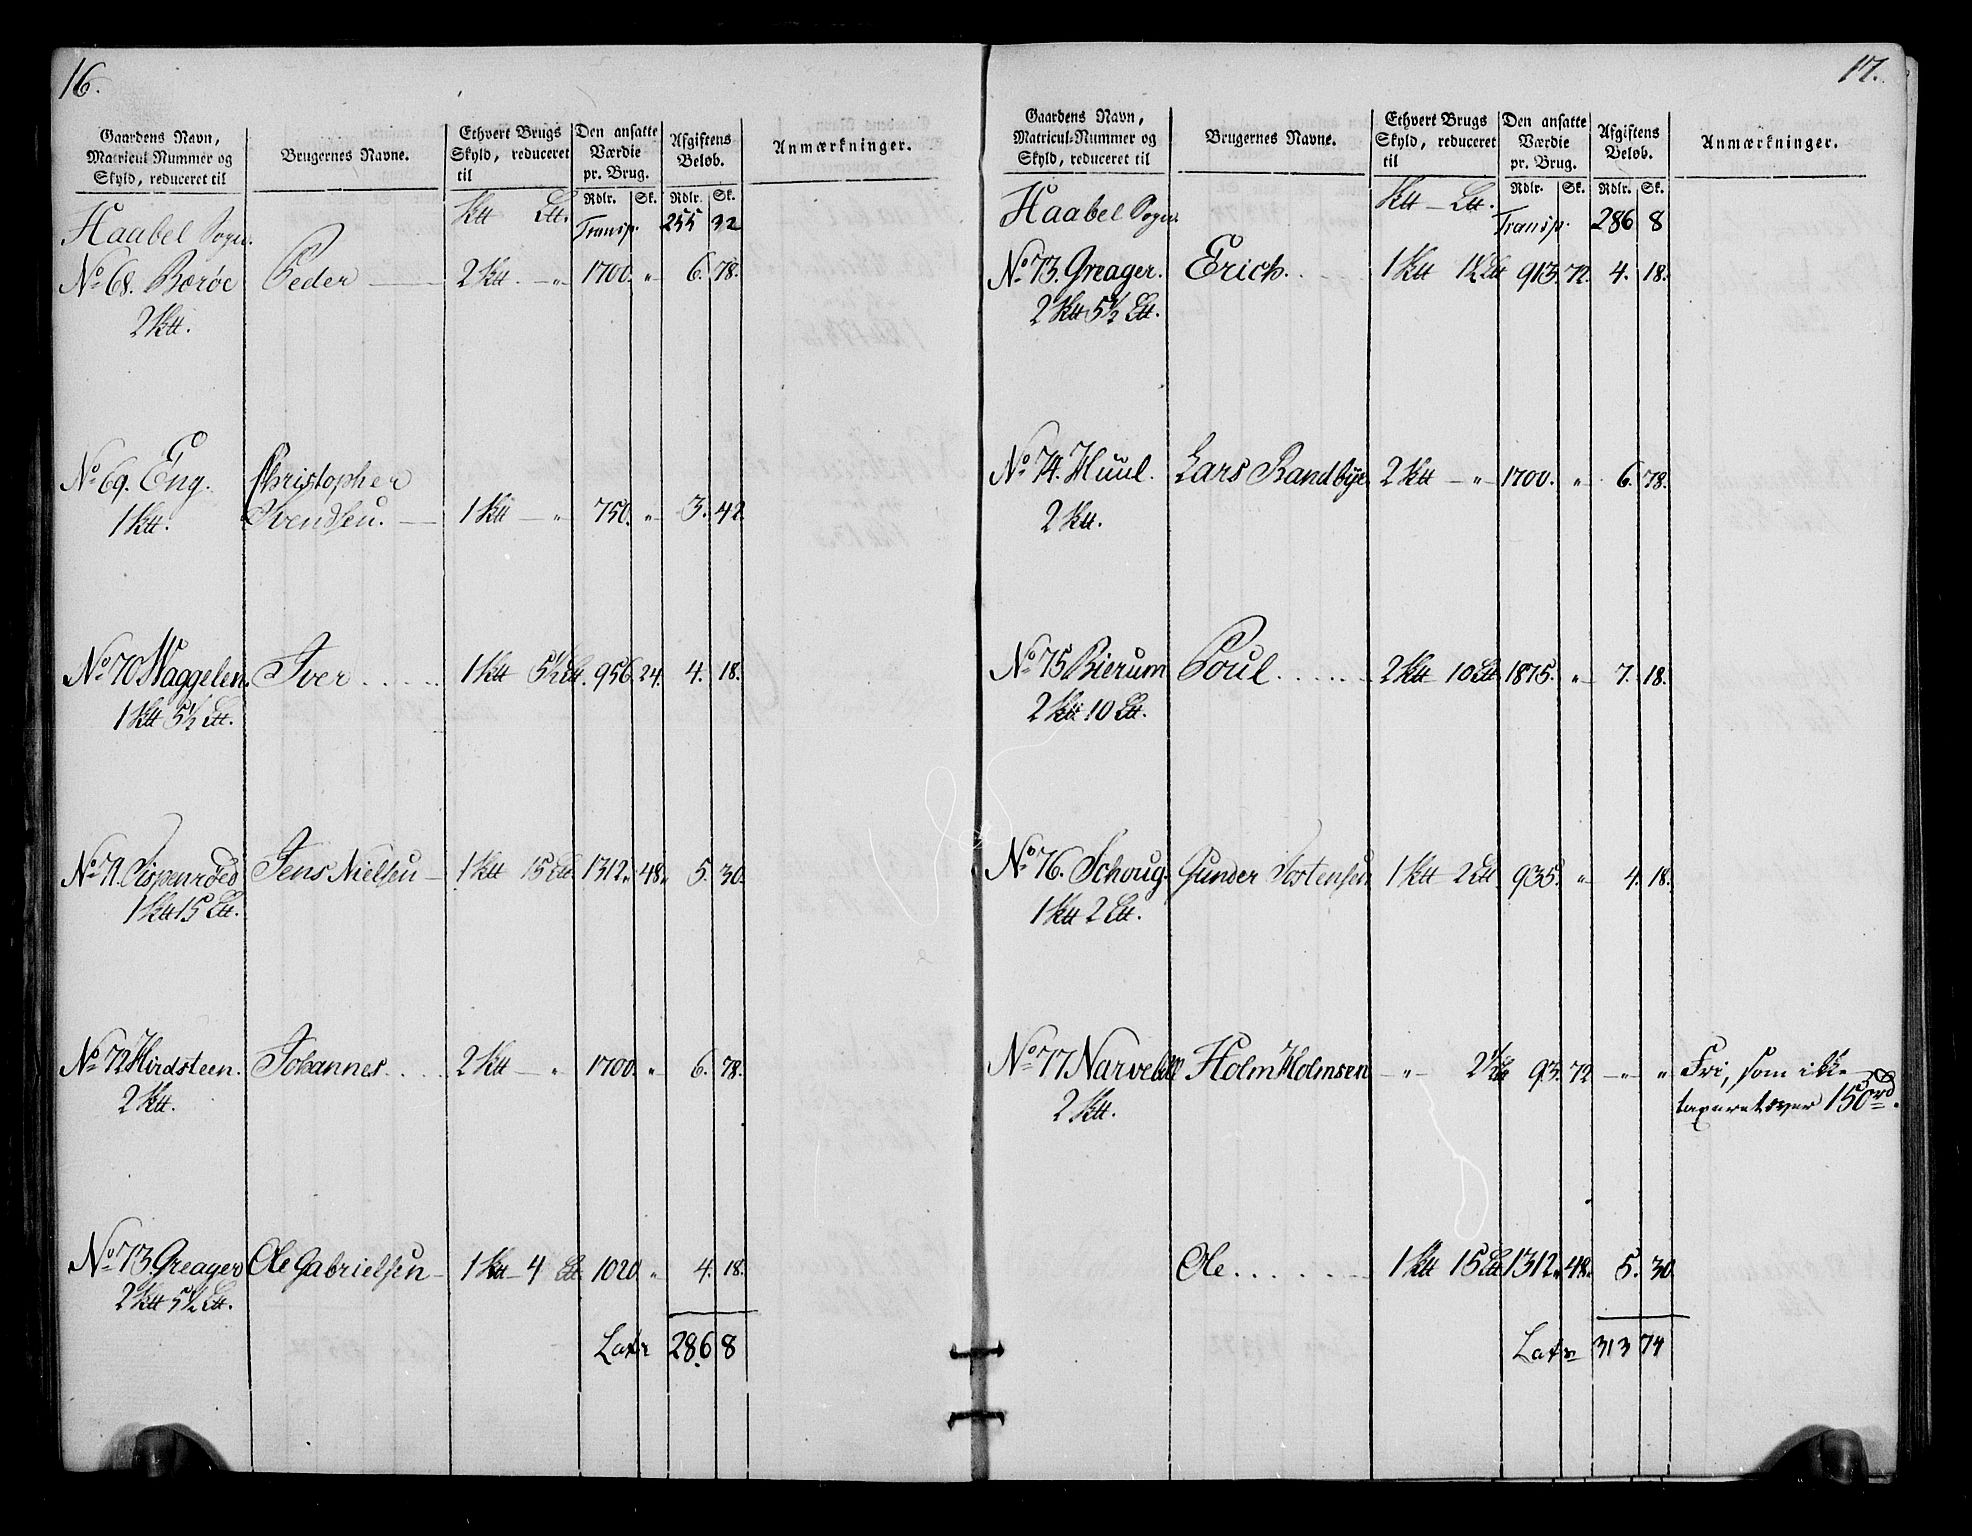 16.
Gaardens Navn, Matricul Nummer og Skyld, reduceret til | Brugernes Navne. | Ethvert Brugs Skyld, reduceret til | Den ansatte Værdie pr. Brug. | Afgiftens Beløb. | Anmærkninger.
Rdlr. Sk. Rdlr. Sk.
Haabel Sogn. ktt Ltt. Transp. 255 32
No 68. Borøe Peder 2 ktt. — „ 1700. „ 6. 78.
2 ktt.
No 69. Eng. Christopher
1 ktt. Svendsen. 1 ktt — „ 750. „ 3. 42.
No 70 Waggelen. Iver 1 ktt 5½ Ltt. 956. 24. 4. 18.
1 ktt 5½ Ltt.
No 71. Pispenrøed Jens Nielsen 1 ktt 15 Ltt 1312. 48. 5. 30.
1 ktt 15 Ltt.
No 72 Hirdsteen. Johannes 2 ktt — „ 1700. „ 6. 78.
2 ktt.
No 73. Greager Ole Gabrielsen 1 ktt 4 Ltt. 1020 „ 4. 18.
2 ktt 5½ Ltt.
Latr 286 8
17.
Gaardens Navn, Matricul-Nummer og Skyld, reduceret til | Brugernes Navne. | Ethvert Brugs Skyld, reduceret til | Den ansatte Værdie pr. Brug. | Afgiftens Beløb. | Anmærkninger.
Rdlr. Sk. Rdlr. Sk.
Haabel Sogn. ktt — Ltt. Transp. 286 8
No 73. Greager. Erich. 1 ktt 1½ Ltt 913. 72. 4. 18.
2 ktt 5½ Ltt.
No 74. Huul. Lars Randbye 2 ktt — „ 1700. „ 6. 78.
2 ktt.
No 75 Bierum Poul 2 ktt 10 Ltt. 1875. „ 7. 18.
2 ktt 10 Ltt.
No 76. Schoug. Gunder Tostensen 1 ktt 2 Ltt. 935. „ 4. 18.
1 ktt 2 Ltt.
No 77 Narvebill Holm Holmsen — „ 2½ Ltt 93. 72 — „ „ Fri, som ikke
2 ktt. taxeret over 150 rd.
Ole. 1 ktt 15 Ltt 1312. 48. 5. 30.
Latr 313 74